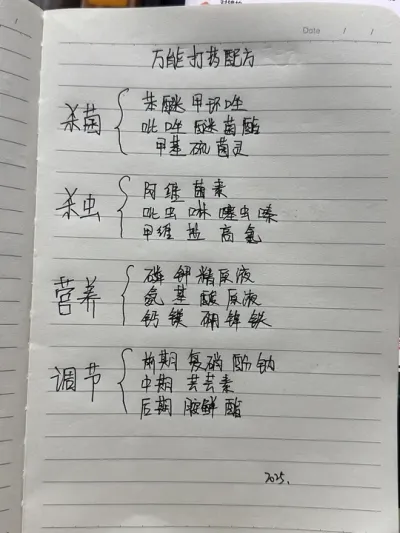 Date / /
万能打药配方
杀菌
苯醚甲环唑
吡唑醚菌酯
甲基硫菌灵
杀虫
阿维菌素
吡虫啉噻虫嗪
甲维盐高氯
营养
磷钾精原液
氨基酸原液
钙镁硼锌铁
调节
前期 复硝酚钠
中期 芸芸素
后期 胺鲜酯
2025.